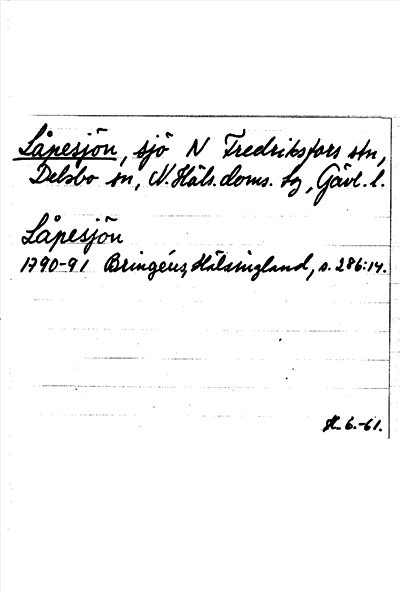 Låpesjön, sjö N Fredriksfors stn,
Delsbo sn, N. Häls. doms. tg, Gävl. l.
Låpesjön
1790-91 Bringéus, Hälsingland, s. 286:14.
H. 6.-61.